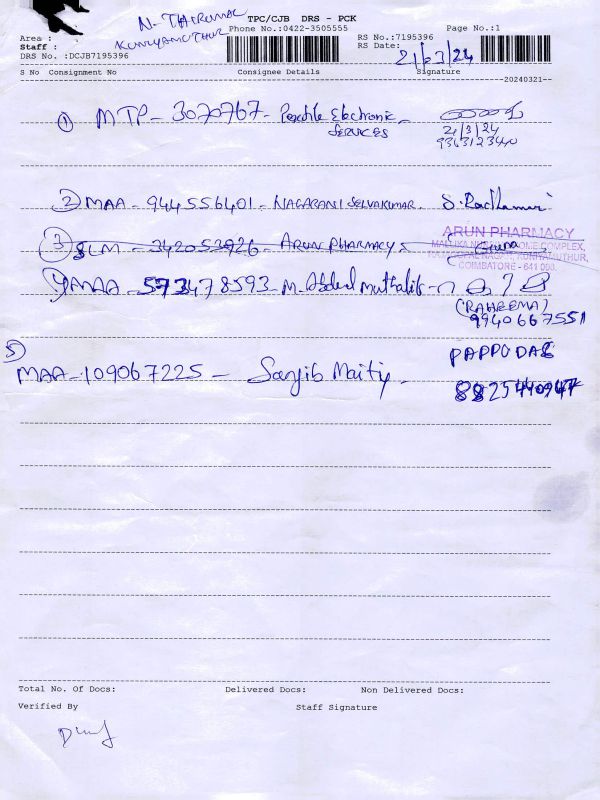 N. THIRUMAL
KUNIYAMUTHUR
TPC/CJB DRS - PCK
Phone No.:0422-3505555
Page No.:1
Area :
Staff :
DRS No. :DCJB7195396
RS No.:7195396
RS Date:
21/03/24
S No Consignment No Consignee Details Signature
20240321
① MTP - 3070767 - Electronic
SERVICES
21/3/24
② MAA - 944556401 - NAGARANI SELVAKUMAR.
③ SLM - 342052926 - ARUN PHARMACY
ARUN PHARMACY
COMPLEX,
KUNIYAMUTHUR,
COIMBATORE - 641 008.
④ MAA - 573478593 - M. Abdul Muthalib -
(RAHEEMA)
9940667551
⑤ MAA - 109067225 - Sanjib Maity -
PAPPO DAS
8825440947
Total No. Of Docs: Delivered Docs: Non Delivered Docs:
Verified By Staff Signature